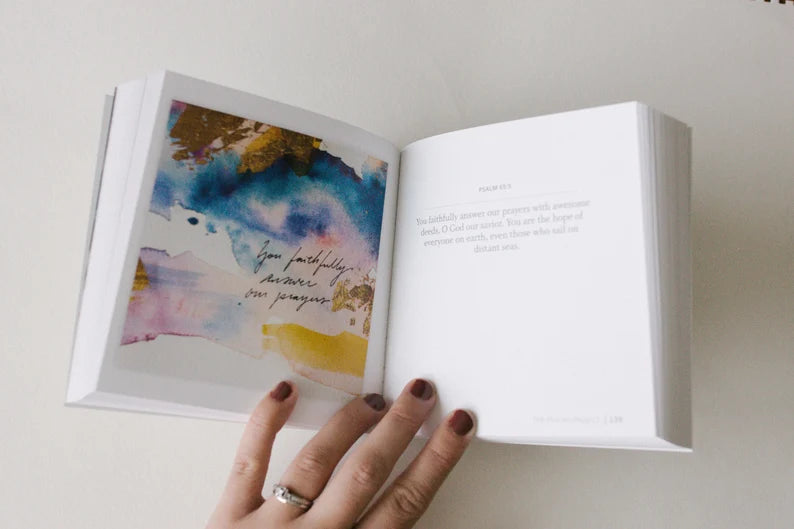 You faithfully
answer
our prayers
PSALM 65:5
You faithfully answer our prayers with awesome
deeds, O God our savior. You are the hope of
everyone on earth, even those who sail on
distant seas.
| 139